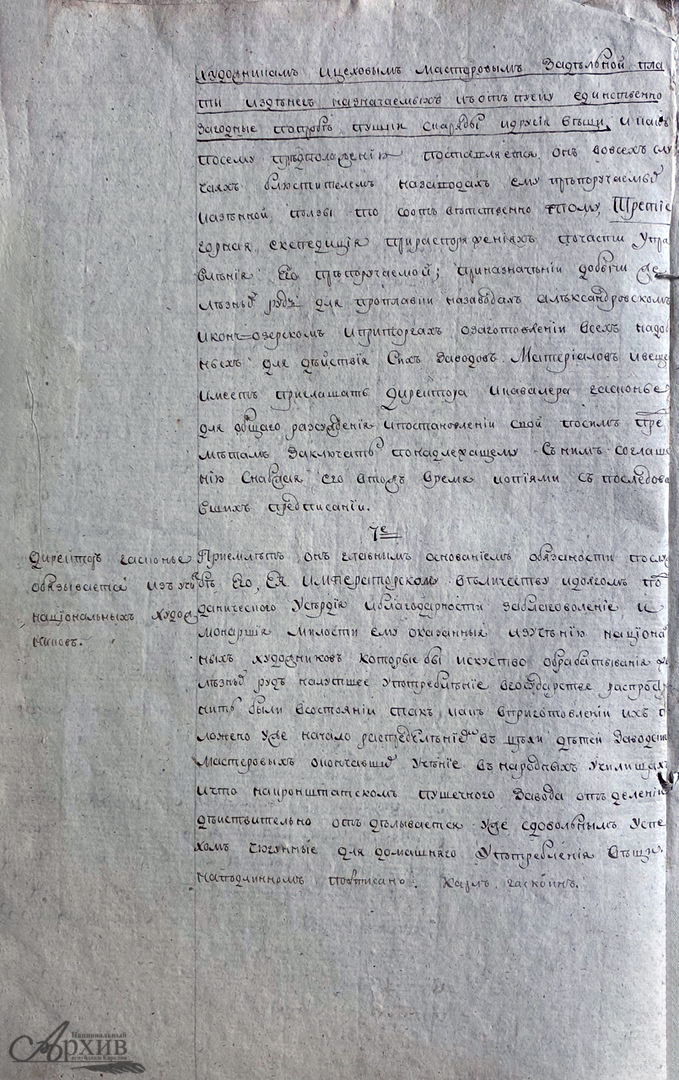 художникамъ ицеховымъ мастеровымъ Задѣльной пла
ти издѣнегъ назначаемыхъ къотпуску единственно
Загодные попробѣ пушки снаряды идругія вѣщи, и какъ
посему предположенію поставляется онъ вовсехъ слу
чаяхъ блюстителемъ назаводахъ ему препоручаемыхъ
казенной ползы то соотвѣтственно тому, Третіе
горная експедиція прираспоряженіяхъ почасти Упра
вленія Его препоручаемой; приназначеніи добычи же
лѣзныхъ рудъ для проплавки назаводахъ александровскомъ
иконъ-озерскомъ иприторгахъ озаготовленіи всехъ надоб
ныхъ для дѣйствія Сихъ Заводовъ Матеріаловъ ивещей
имеетъ приглашать директора икавалера гасконье
для общаго разсужденія ипостановленіи свои посимъ пред
мѣтамъ Заключать понадлежащему Снимъ соглаше
нію Снабжая его втожъ время копіями съпоследова
вшихъ предписаніи.
7е
Директоръ гасконье
обязывается изъучить
національныхъ худож
никовъ.
Приемлетъ онъ главнымъ основаніемъ обязаности послу
Его, Ея Императорскому вѣличеству идолгомъ под
даническаго Усердія иблагодарности Заблаговоленіе и
Монаршія милости ему оказанныя изученію націона
ныхъ художниковъ которые бы искуство обрабатыванія же
лѣзныхъ рудъ налутшее употребленіе вгосударстве распростра
нить были всостояніи такъ какъ вприготовленіи ихъ по
ложено уже начало распредѣленіемъ въ цѣхи дѣтей Заводскихъ
Мастеровыхъ окончавшихъ Учѣніе въ народныхъ училищахъ
ичто накронштатскомъ пушечного Завода отделеніи
дѣйствительно отдѣлывается уже сдовольнымъ успе
хомъ чюгунные для домашняго Употребленія Вѣщи.
наподлинномъ подписано: Карлъ гаскоинъ.
Национальный
Архив
Республики Карелия